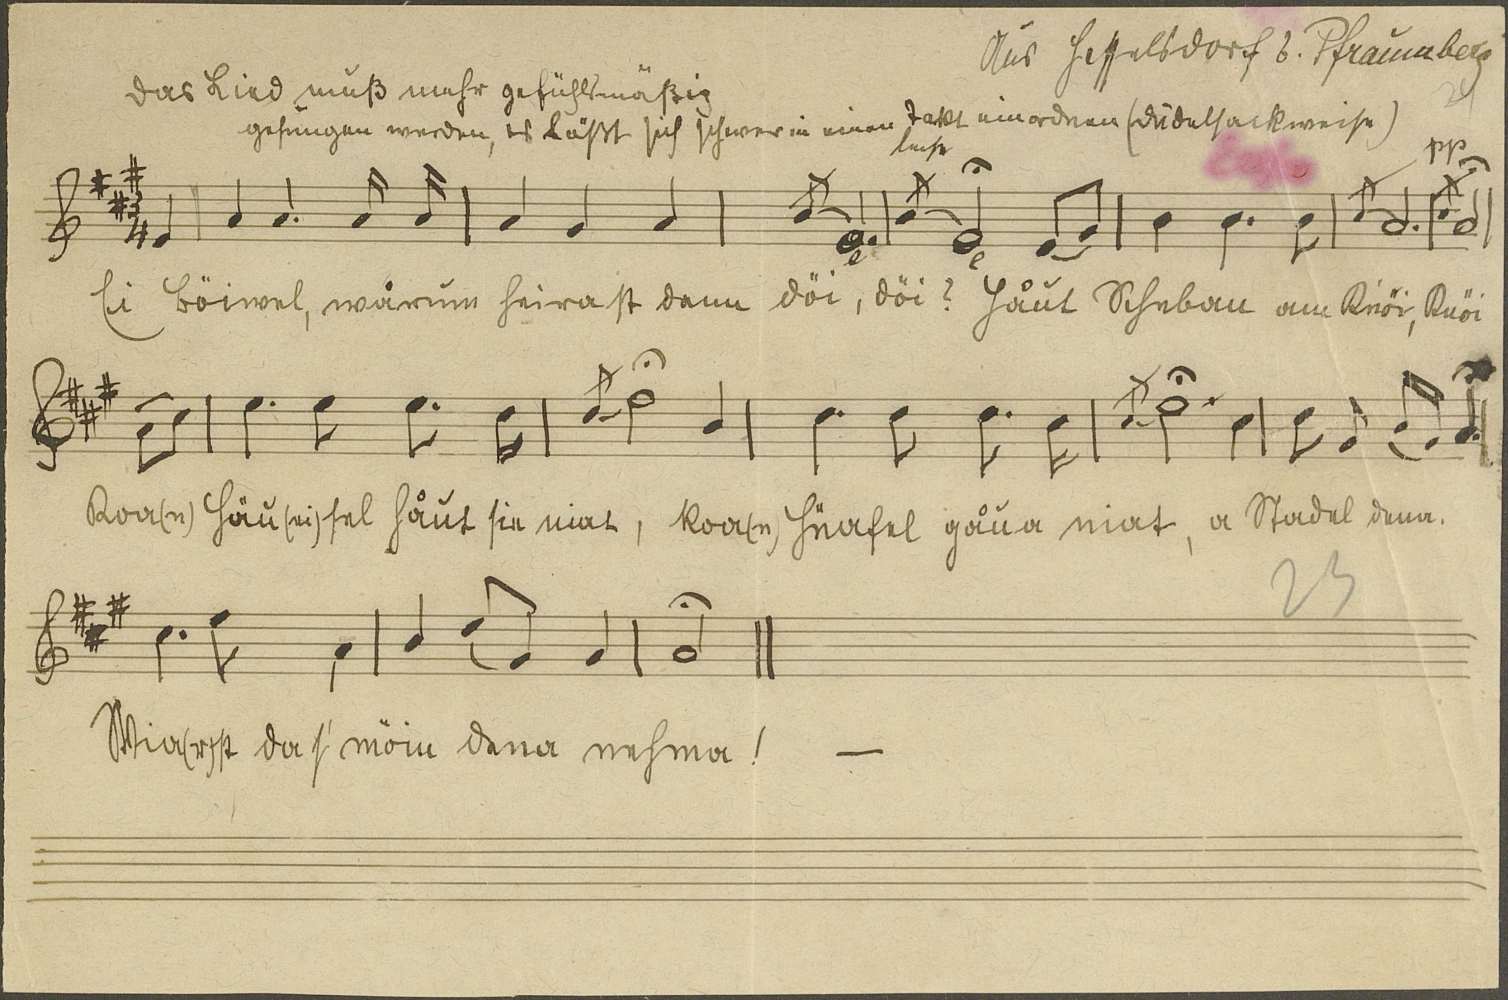 Aus Hesselsdorf b. Pfraumberg
das Lied muß mehr gefühlsmäßig
gesungen werden, es läßt sich schwer in einen Takt einordnen (Dudelsackweise)
leise
pp
3
4
e e
Ei Böiwel, wårum heirast denn döi, döi? Håut Scheban am Knöi, Knöi
Koa(n) Häu(ei)sel håut sie niat, koa(n) gåua niat, a Stadel dena.
23
Wia(r)st da s' möin dena nehma! —